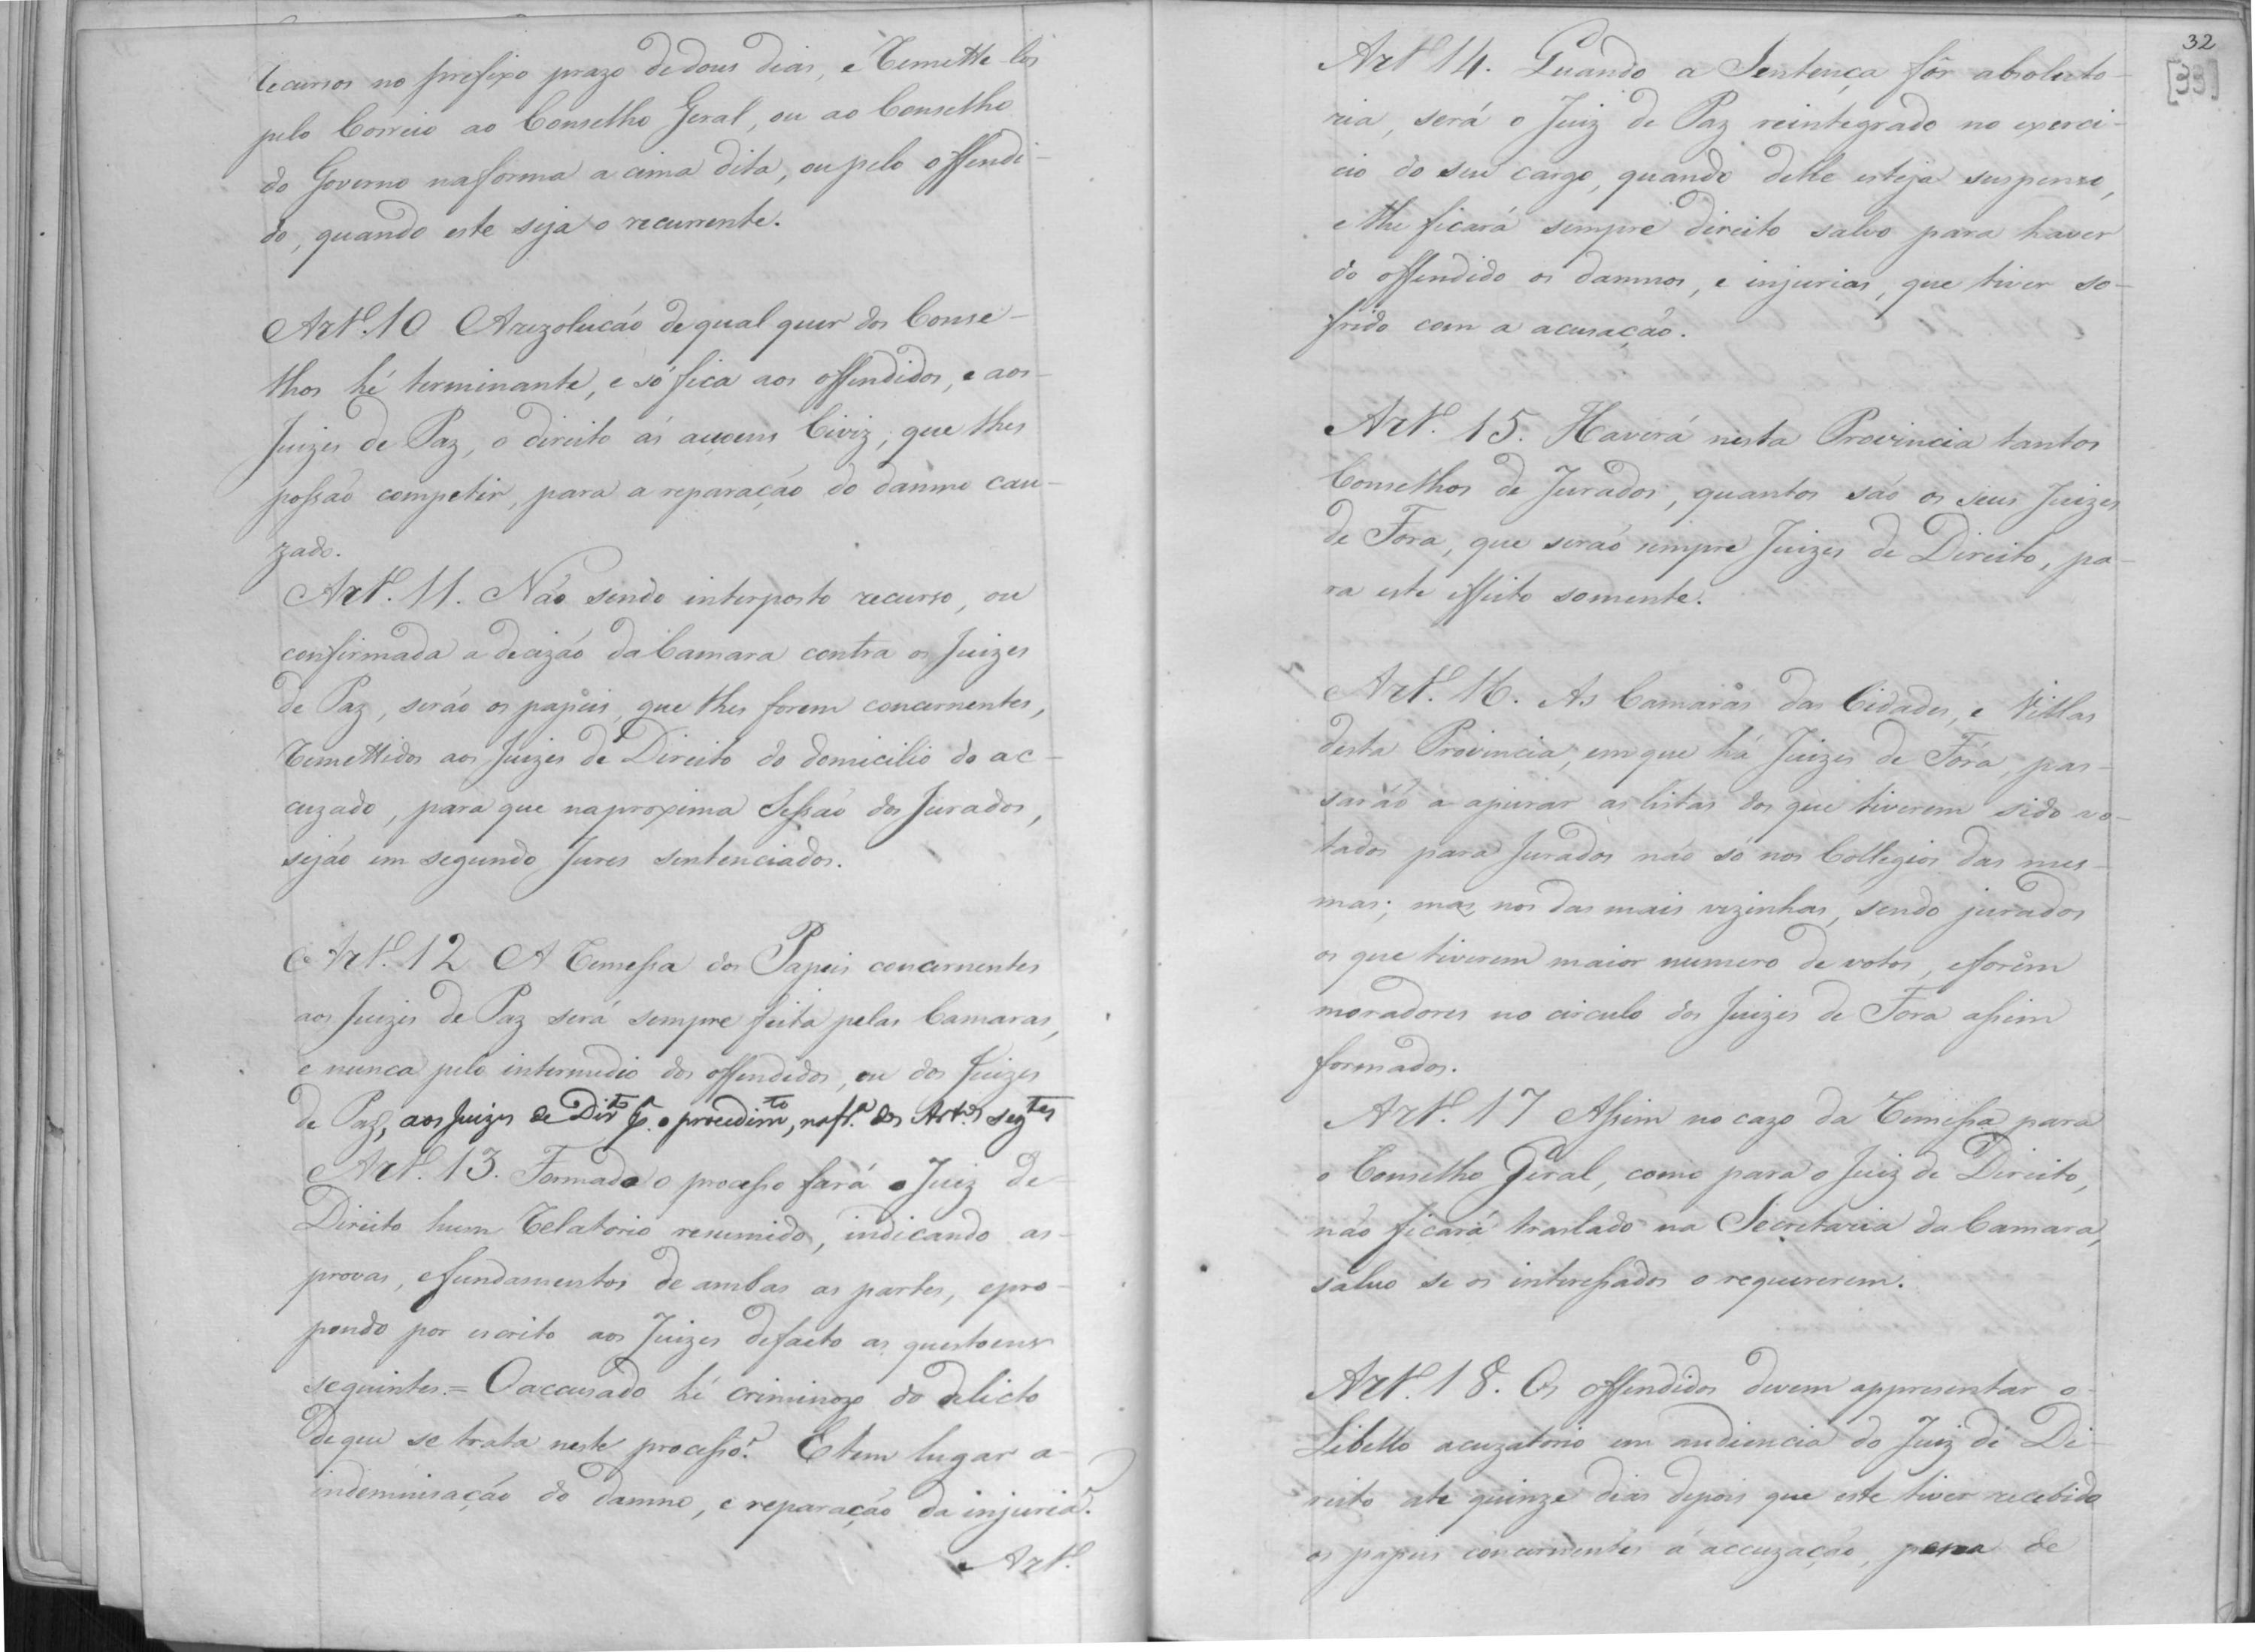 recursos no prefixo prazo dedous dias, e remette-los
pelo Correio ao Conselho Geral, ou ao Conselho
do Governo naforma a cima dita, ou pelo offendi-
do, quando este seja o recurrente.
Art.º 10 Arezolucáo de qual quer dos Conse-
lhos hé terminante, e só fica aos offendidos, e aos
Juizes de Paz, o direito ás açoens Civiz, que lhes
possaõ competir, para a reparaçáo do damno cau-
zado.
Art.º 11. Náo sendo interposto recurso, ou
confirmada a decizáo da Camara contra os Juizes
de Paz, seráo os papeis, que lhes forem concernentes,
remettidos aos Juizes de Direito do domicilio do ac-
cuzado, para que naproxima Sessáo dos Jurados,
sejáo em segundo Jures sentenciados.
Art.º 12 A remessa dos Papeis concernentes
aos Juizes de Paz será sempre feita pelas Camaras,
e nunca pelo intermedio dos offendidos, ou dos Juizes
de Paz, aos Juizes de Dirto pª. o procedimto, na fª. dos Artos segtes
Art.º 13. Formado o processo fará o Juiz de
Direito hum relatorio resumido, indicando as
provas, efundamentos de ambas as partes, epro-
pondo por escrito aos Juizes defacto as questoens
seguintes = Oaccusado hé criminozo do delicto
deque se trata neste processo? E tem lugar a
indemnisaçáo do damno, e reparaçáo da injuria?
Art.º
32
[33]
Art.º 14. Quando a Sentença fôr absoluto-
ria, será o Juiz de Paz reintegrado no exerci-
cio do seu cargo, quando delle esteja suspenso,
e lhe ficará sempre direito salvo para haver
do offendido os damnos, e injurias, que tiver so-
frido com a acusaçáo.
Art.º 15. Haverá nesta Provincia tantos
Conselhos de Jurados, quantos sáo os seus Juizes
de Fora, que seráo sempre Juizes de Direito, pa-
ra este effeito somente.
Art.º 16. As Camaras das Cidades, e Villas
desta Provincia, em que há Juizes de Fóra, pas-
saráõ a apurar as listas dos que tiverem sido vo-
tados para Jurados náo só nos Collegios das mes-
mas; mas nos das mais vezinhas, sendo jurados
os que tiverem maior numero de votos, eforem
moradores no circulo dos Juizes de Fora assim
formados.
Art.º 17 Assim no cazo da remessa para
o Conselho Geral, como para o Juiz de Direito,
náo ficará traslado na Secretaria da Camara,
salvo se os interessados o requererem.
Art.º 18. Os offendidos devem appresentar o
Libello acuzatorio em audiencia do Juiz de Di-
reito ate quinze dias depois que este tiver recebido
os papeis concernentes á accuzaçáo, pena de